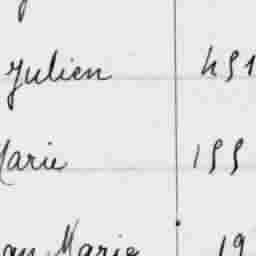 Julien 491
Marie 199
an Marie 19